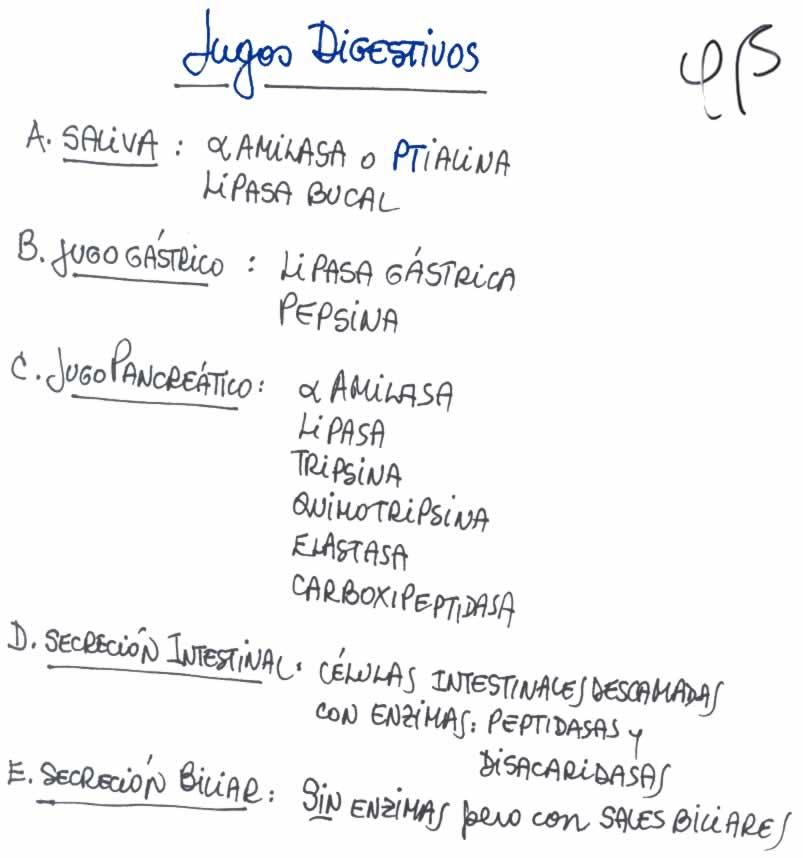 Jugos DiGESTiVOS
φβ
A. SALiVA : α AMiLASA o PTiALiNA
LiPASA BUCAL
B. JUGO GÁSTRiCO : LiPASA GÁSTRiCA
PEPSiNA
C. JUGO PANCREÁTiCO : α AMiLASA
LiPASA
TRiPSiNA
QUiMOTRiPSiNA
ELASTASA
CARBOXiPEPTiDASA
D. SECRECiÓN INTESTiNAL. CÉLULAS INTESTiNALES DESCAMADAS
CON ENZiMAS: PEPTiDASAS y
DiSACARiDASAS
E. SECRECiÓN BiLiAR : SiN ENZiMAS pero con SALES BiLiARES